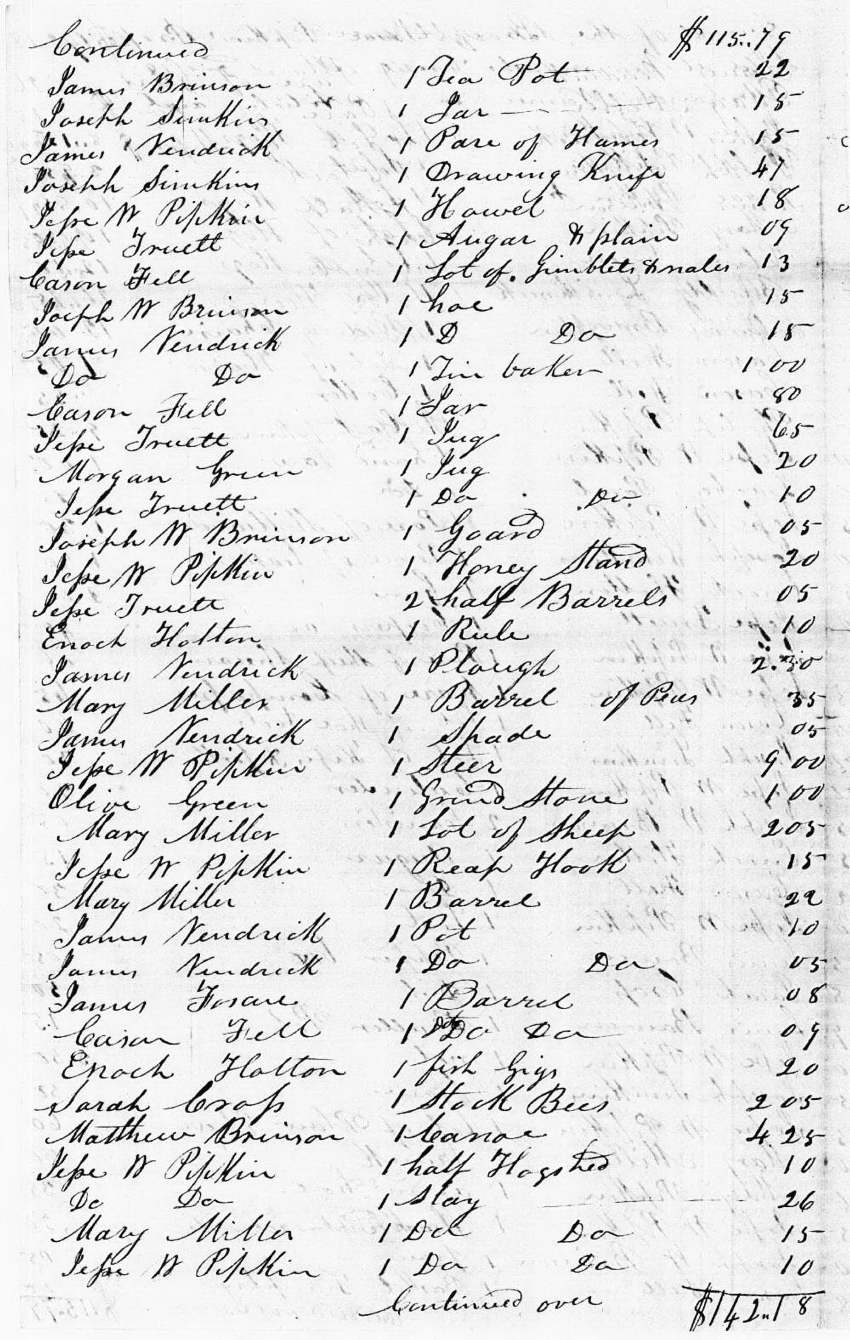 Continued $115..79
James Brinson 1 Tea Pot 22
Joseph Simkins 1 Jar 15
James Vendrick 1 Pare of Hames 15
Joseph Simkins 1 Drawing Knife 47
Jesse W Pipkin 1 Howel 18
Jesse Truett 1 Augar & plain 09
Cason Fell 1 Lot of Gimblets & nales 13
Joseph W Brinson 1 hoe 15
James Vendrick 1 D Do 15
Do Do 1 Tin baker 1 00
Cason Fell 1 Jar 80
Jesse Truett 1 Jug 65
Morgan Green 1 Jug 20
Jesse Truett 1 Do Do 10
Joseph W Brinson 1 Goard 05
Jesse W Pipkin 1 Honey Stand 20
Jesse Truett 2 half Barrels 05
Enoch Holton 1 Rule 10
James Vendrick 1 Plough 2.30
Mary Miller 1 Barrel of Peas 35
James Vendrick 1 Spade 05
Jesse W Pipkin 1 Steer 9 00
Olive Green 1 Grind Stone 1 00
Mary Miller 1 Lot of Sheep 2 05
Jesse W Pipkin 1 Reap Hook 15
Mary Miller 1 Barrel 22
James Vendrick 1 Pot 10
James Vendrick 1 Do Do 05
James 1 Barrel 08
Cason Fell 1 Do Do 09
Enoch Holton 1 fish Gigs 20
Sarah Cross 1 Stock Bees 2 05
Matthew Brinson 1 Canoe 4 25
Jesse W Pipkin 1 half Hogshed 10
Do Do 1 Slay 26
Mary Miller 1 Do Do 15
Jesse W Pipkin 1 Do Do 10
Continued over $142..18